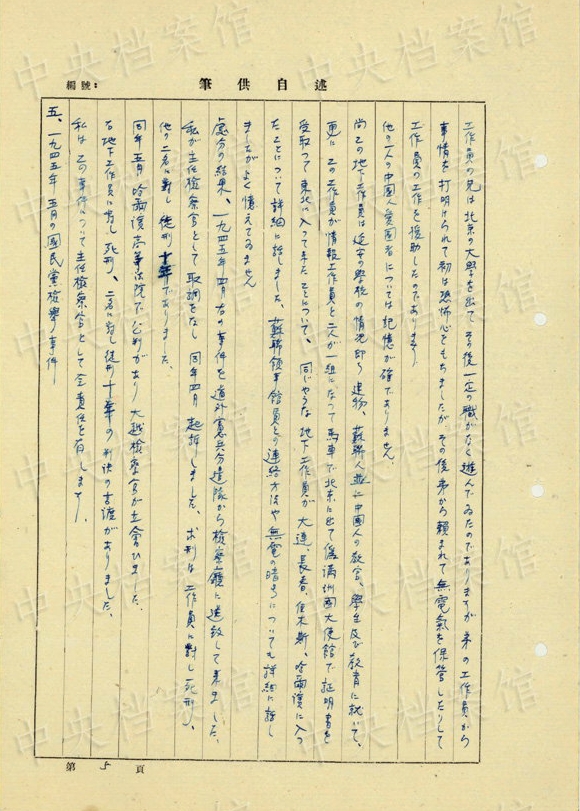 述自供筆
編號：
工作員の兄は北京の大學を出て、その後一定の職がなく遊んでゐたのでありますが弟の工作員から
事情を打明けられて初は恐怖心をもちましたがその後弟から賴まれて無電氣を保管したりして
工作員の工作を援助したのであります。
他の一人の中國人愛國者については記憶が確でありません。
尚この地下工作員は延安の學校の情況即ち建物、蘇聯人並に中國人の教官、學生及び教育に就いて、
更にこの工作員が情報工作員と二人が一組になつて馬車で北京に出て偽滿洲國大使館で証明書を
受取つて東北に入つて来たことについて、同じやうな地下工作員が大連、長春、佳木斯、哈爾濱に入つ
たことについて詳細に話しました、蘇聯領事館員との連絡方法や無電の暗号についても詳細に話し
ましたがよく憶えてゐません
處分の結果、一九四五年四月右の事件を道外憲兵分遣隊から檢察廳に送致して来ました、
私が主任檢察官として取調をなし同年四月起訴しました、求刑は工作員に對し死刑、
他の二名に對し徒刑十年でありました、
同年五月哈爾濱高等法院で公判があり大越檢察官が立會ひました、
右地下工作員に對し死刑、二名に對し徒刑十年の判決の言渡がありました、
私はこの事件について主任檢察官として全責任を有します、
五、一九四五年五月の國民黨檢擧事件
第 5 頁
中央档案馆